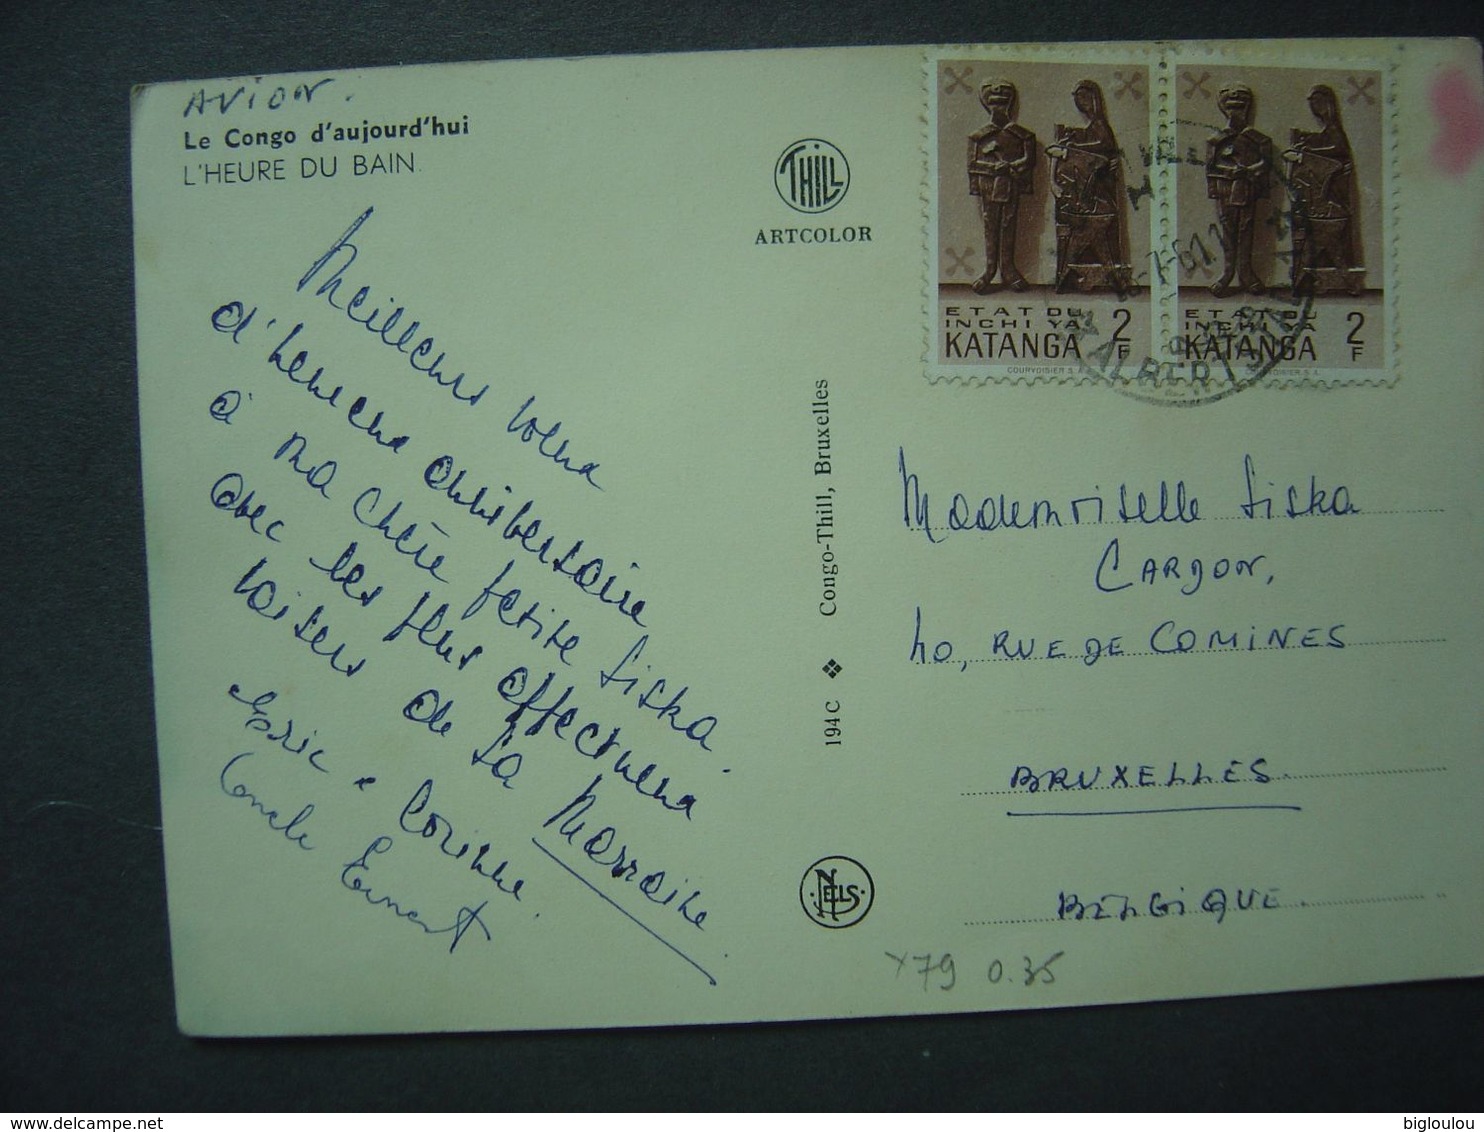 AVION.
Le Congo d'aujourd'hui
L'HEURE DU BAIN.
THILL
ARTCOLOR
Meilleurs voeux
d'heureux anniversaire
à ma chère petite Siska
avec les plus affectueux
baisers de ta Marraine
Eric - Corinne.
Oncle Ernest
194C ❖ Congo-Thill, Bruxelles
NELS
ETAT DU
INCHI YA
KATANGA 2 F
COURVOISIER S.A.
ETAT DU
INCHI YA
KATANGA 2 F
ALBERTVILLE
Mademoiselle Siska
CARDON,
40, RUE DE COMINES
BRUXELLES.
BELGIQUE.
Y79 0.35
bigloulou